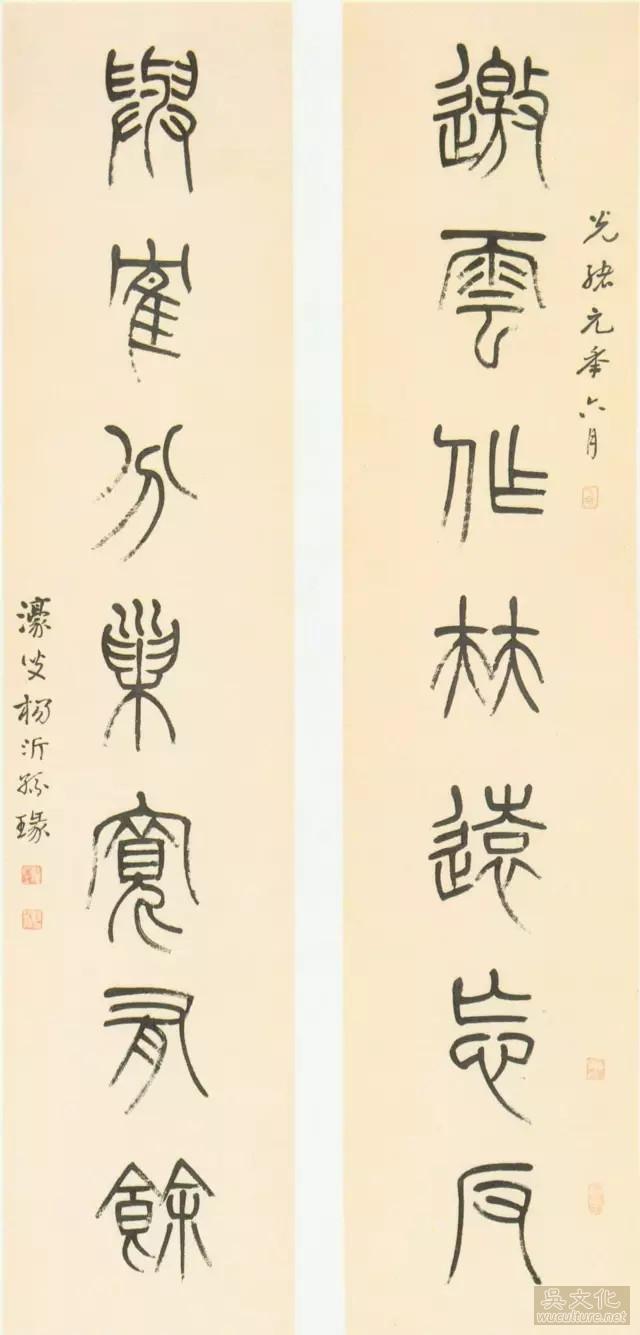 光緒元年六月
邀雲作林遠忘反
與隺分巢寬有餘
濠叟楊沂孫瑑
吳文化
wuculture.net